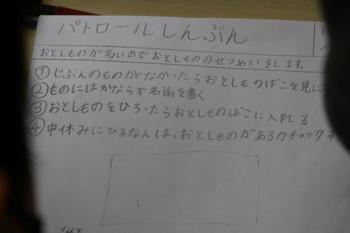 パトロールしんぶん
おとしものが多いのでおとしもののせつめいをします。
①じぶんのものがなかったらおとしものばこを見に
②ものにはかならず名前を書く
③おとしものをひろったらおとしものばこに入れる
④中休みにひまな人は、おとしものがあるかチェックす